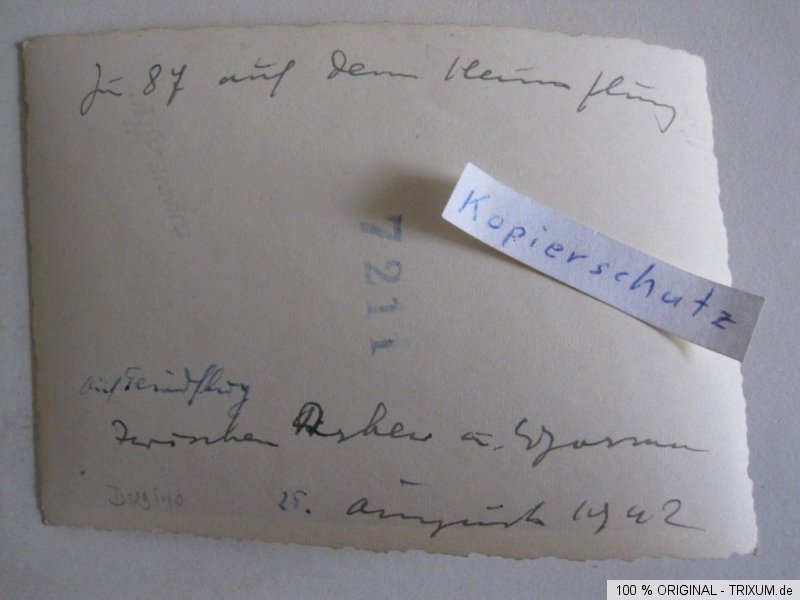 Ju 87 auf dem Heimflug
Kopierschutz
7211
auf Feindflug
zwischen Rshew u.
Dugino
25. August 1942
100 % ORIGINAL - TRIXUM.de